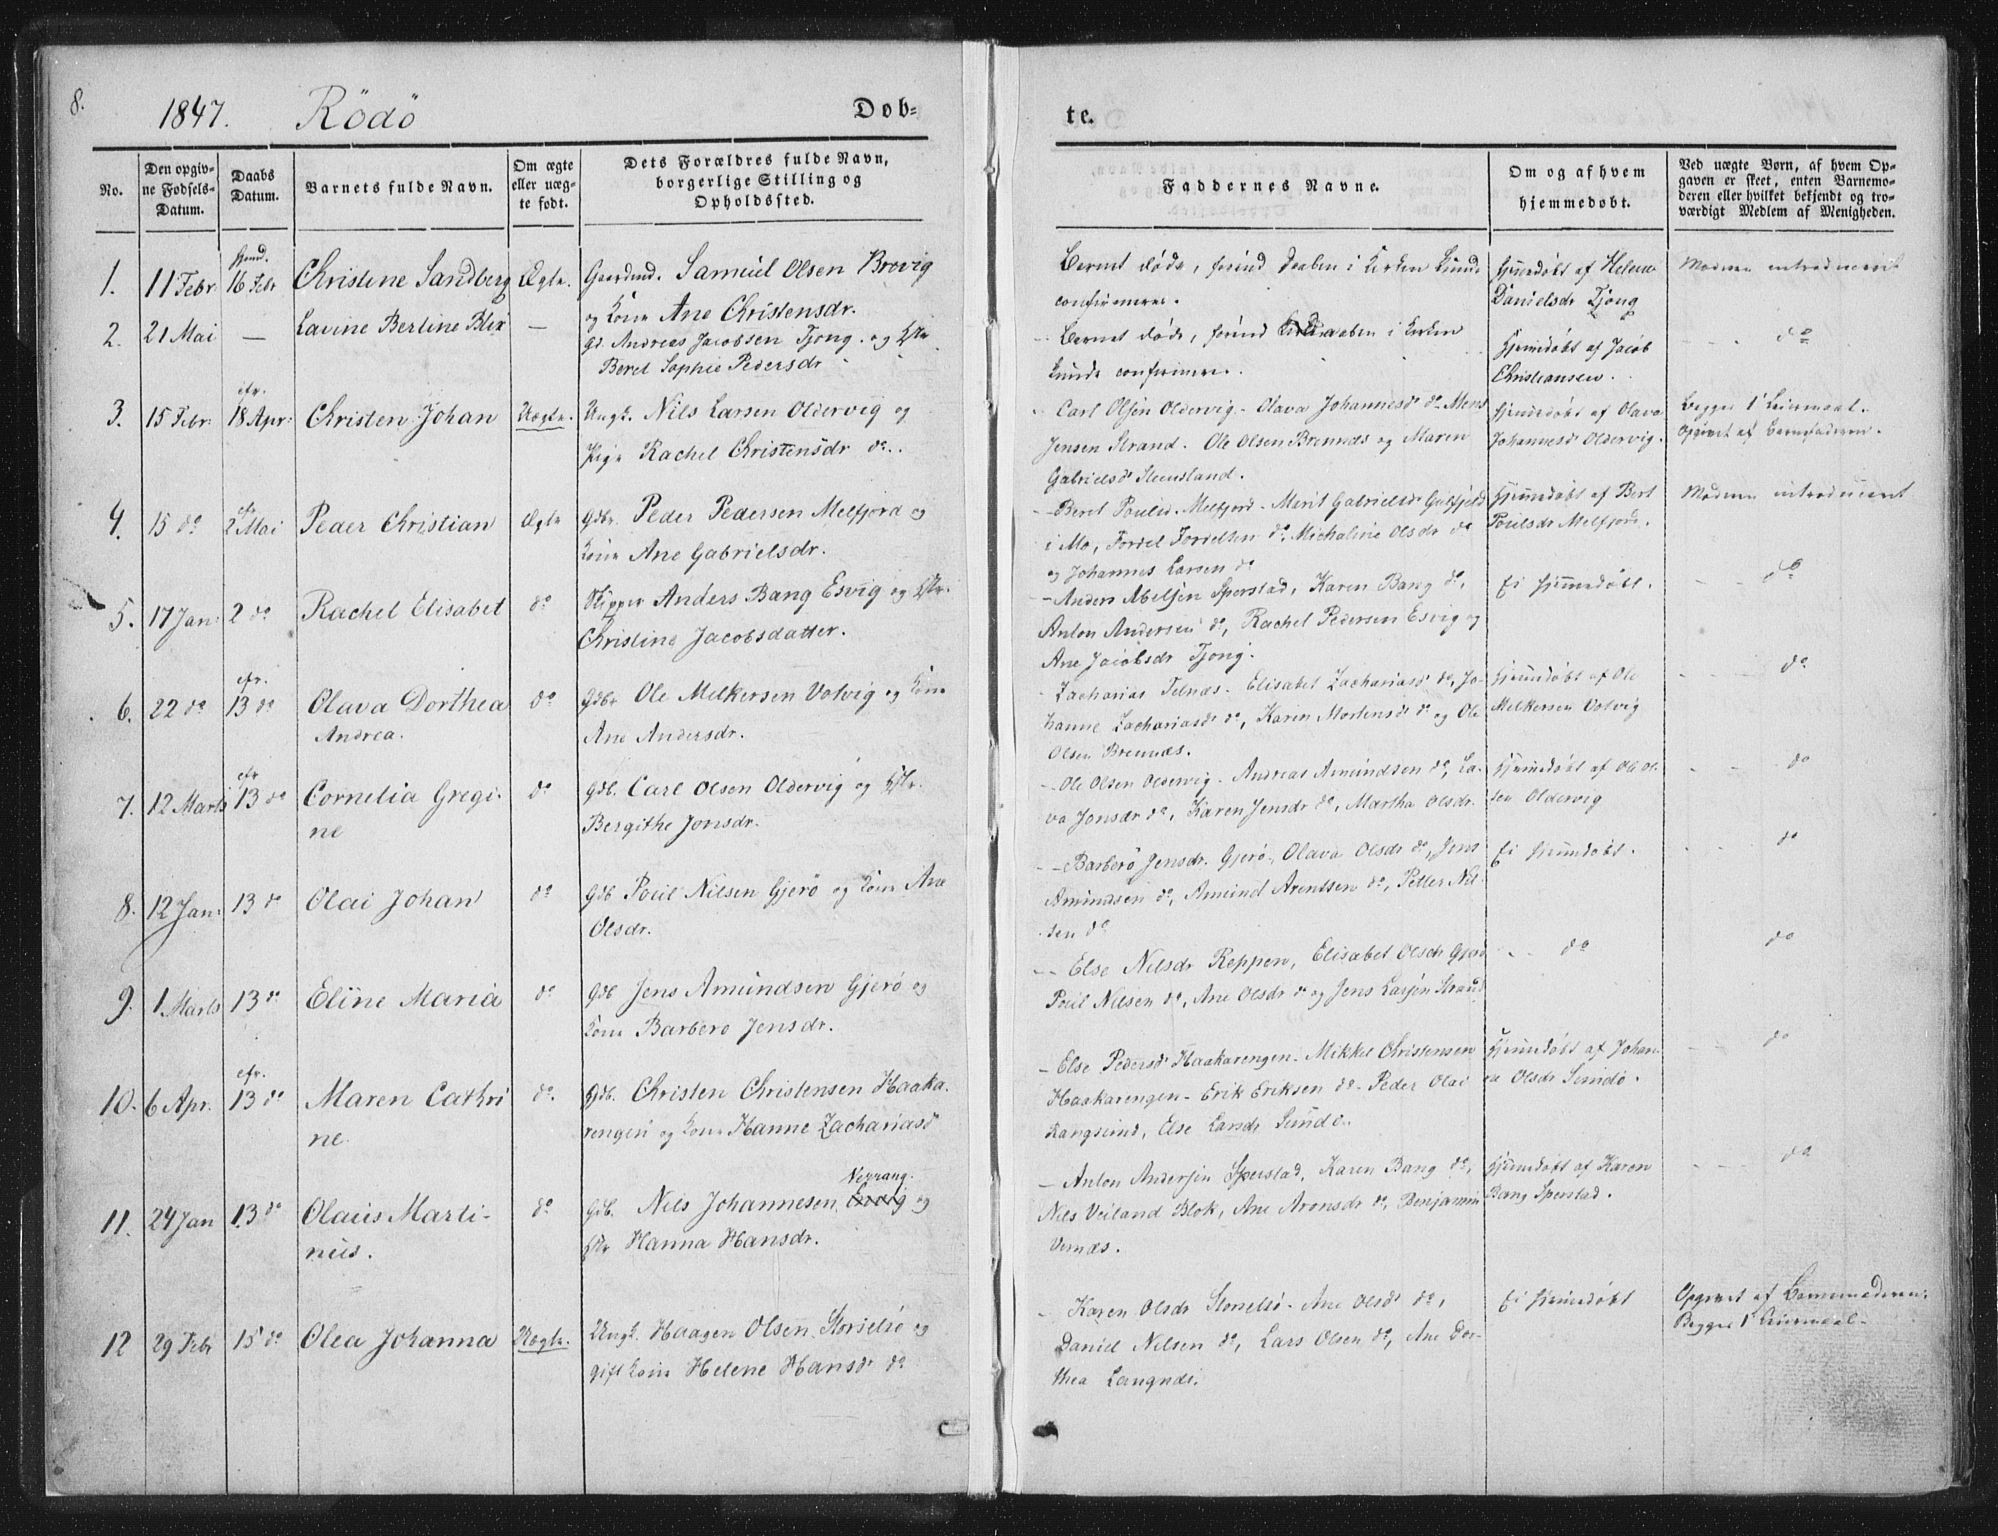 8.
1847. Rödö
Dob-
te.
No.
Den opgiv-
ne Fødsels-
Datum.
Daabs
Datum.
Barnets fulde Navn.
Om ægte
eller uæg-
te født.
Dets Forældres fulde Navn,
borgerlige Stilling og
Opholdssted.
Faddernes Navne.
Om og af hvem
hjemmedøbt.
Ved uægte Børn, af hvem Op-
gaven er skeet, enten Barnemo-
deren eller hvilket bekjendt og tro-
værdigt Medlem af Menigheden.
1. 11 Febr 16 Febr Christene Sandberg Ægte. Gaardmd. Samuel Olsen Brevig
og Kone Ane Christensdr.
Barnet døde, forind Daaben i Kirken kunde
confirmeres.
Hjemdøbt af Helene
Danielsdr Tjong
Moderen introduceret
2. 21 Mai — Lavine Berline Blix — Gd. Andreas Jacobsen Tjong. og Hstr
Beret Sophie Pedersdr
Barnet døde, forind Daaben i Kirken
kunde confirmeres.
Hjemdøbt af Jacob
Christiansen.
do
3. 15 Febr. efr. 18 Apr: Christen Johan Uægte. Ungk. Nils Larsen Oldervig og
Pige Rachel Christensdr do.
Carl Olsen Oldervig - Olava Johannesdr do - Mons
Jensen Strand. Ole Olsen Brennes og Maren
Gabrielsdr Steensland.
Hjemdøbt af Olava
Johannesdr Oldervig.
Begges 1te Leiermaal.
Opgivet af Barnefaderen.
4. 15 do 2 Mai Peder Christian Ægte Gdbr. Peder Pedersen Melfjord og
Kone Ane Gabrielsdr.
Beret Poulsd. Melfjord - Merit Gabrielsdr
i Mo, Michaline Olsdr do
og Johannes Larsen do
Hjemdøbt af Bert
Poulsdr Melfjord.
Moderen introduceret
5. 17 Jan. 2 do Rachel Elisabet do Skipper Anders Bang Esvig og Hstr.
Christine Jacobsdatter.
Anders Nilsen Sperstad, Karen Bang do,
Anton Andersen do, Rachel Pedersen Esvig og
Ane Jacobsdr Tjong.
Ei hjemmedøbt.
do
6. 22 do efr. 13 do Olava Dorthea
Andrea.
do Gdbr Ole Melkersen Valvig og Kone
Ane Andersdr.
Zacharias Telnæs - Elisabet Zachariasd do, Jo-
hanne Zachariasdr do, Karen Mortensdr do og Ole
Olsen Brennæs.
Hjemdøbt af Ole
Melkersen Valvig
do
7. 12 Marts efr 13 do Cornelia Gregi-
ne
do Gdb. Carl Olsen Oldervig og Hstr.
Bergithe Jonsdr.
Ole Olsen Oldervig - Andreas Amundsen do, La-
va Jonsdr do, Karen Jensdr do, Martha Olsdr.
Hjemdøbt af Ole Ol-
sen Oldervig
do
8. 12 Jan. 13 do Olai Johan do Gdb Poul Nilsen Gjerö og Kone Ane
Olsdr.
Barbero Jensdr. Gjerö, Olava Olsdr do, Jens
Amundsen do, Amund Arentsen do, Petter Nil-
sen do
Ei hjemdøbt.
do
9. 1 Marts 13 do Eline Maria do Gdb Jens Amundsen Gjerö og
Kone Barbero Jensdr.
Else Nilsdr Reppen, Elisabet Olsdr Gjerö
Poul Nilsen do, Ane Olsdr do og Jens Larsen Strand
do
do
10. 6 Apr. efr. 13 do Maren Cathri
ne.
do. Gdb. Christen Christensen Haaka-
rengen og Kone Hanne Zachariasdr
Else Pedersdr Haakarengen - Mikkel Christensen
Haakarengen - Erik Eriksen do - Peder Olai
Rangsund, Else Larsdr Sundö.
Hjemdøbt af Johan-
na Olsdr Sundö.
do
11. 24 Jan 13 do Olaus Marti-
nus.
do Gdb. Nils Johannesen Nevrang. og
Hstr Hanna Hansdr.
Anton Andersen Sperstad, Karen Bang do,
Nils Veiland Blok, Ane Aronsdr do, Benjamin
Vernæs.
Hjemdøbt af Karen
Bang Sperstad.
do
12 29 Febr 15 do Olea Johanna Uægte. Ungk. Haagen Olsen Storselsö og
gift Kone Helene Hansdr do
Karen Olsdr Storselsö - Ane Olsdr do,
Daniel Nilsen do, Lars Olsen do, Ane Dor-
thea Langnes.
Ei hjemmedøbt
Opgivet af Barnemoderen.
Begges 1te Leiermaal.